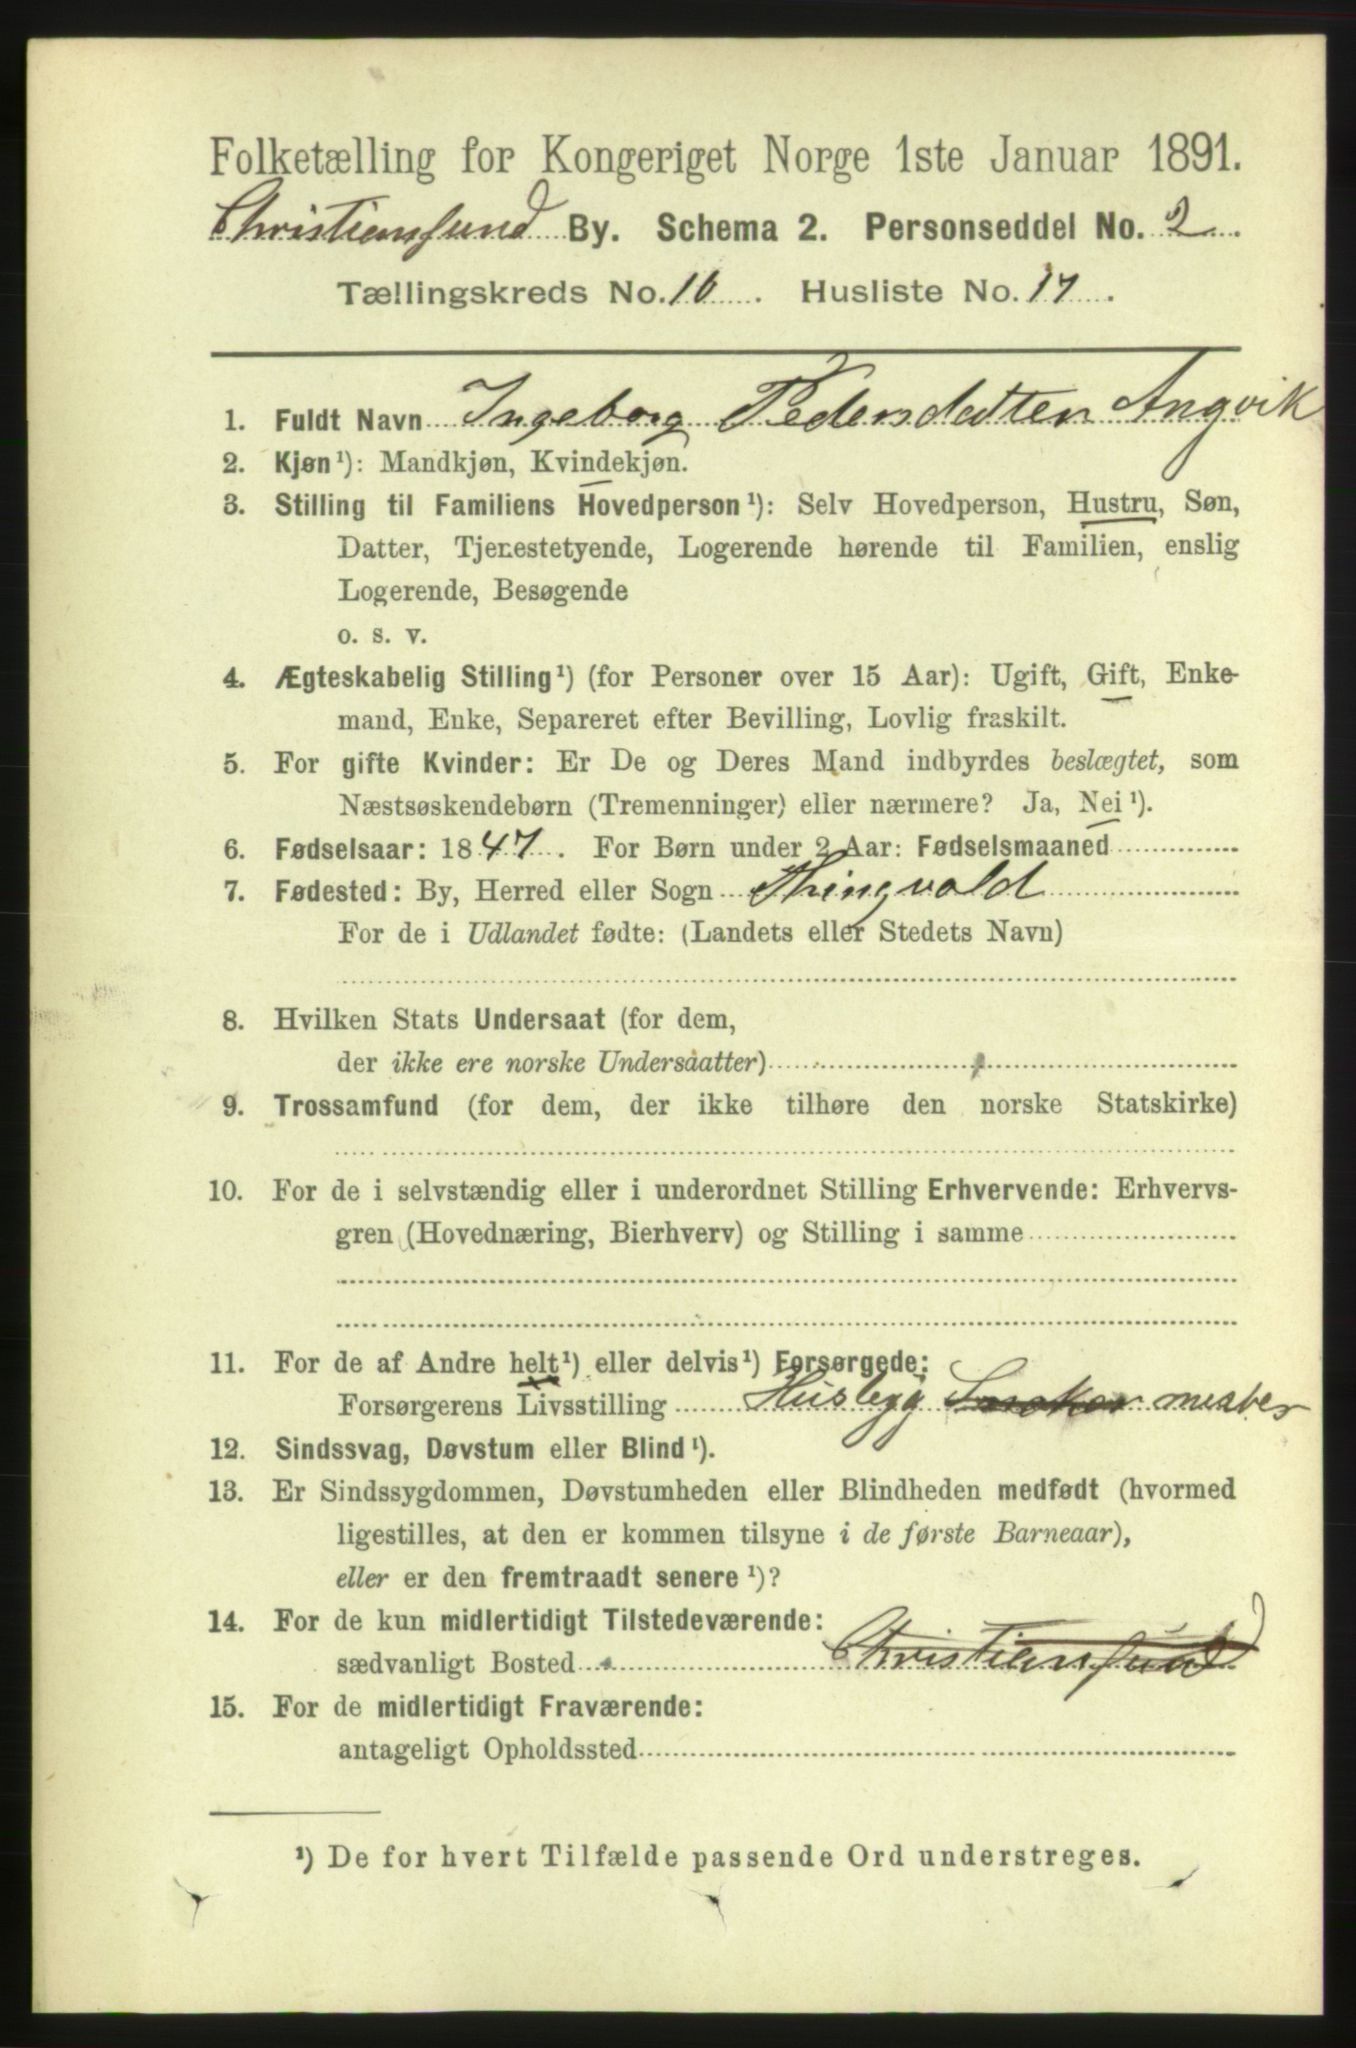 Folketælling for Kongeriget Norge 1ste Januar 1891.
Christiansund By. Schema 2. Personseddel No. 2
Tællingskreds No. 10. Husliste No. 17.
1. Fuldt Navn Ingeborg Pedersdatter Angvik
2. Kjøn¹): Mandkjøn, Kvindekjøn.
3. Stilling til Familiens Hovedperson¹): Selv Hovedperson, Hustru, Søn,
Datter, Tjenestetyende, Logerende hørende til Familien, enslig
Logerende, Besøgende
o. s. v.
4. Ægteskabelig Stilling¹) (for Personer over 15 Aar): Ugift, Gift, Enke-
mand, Enke, Separeret efter Bevilling, Lovlig fraskilt.
5. For gifte Kvinder: Er De og Deres Mand indbyrdes beslægtet, som
Næstsøskendebørn (Tremenninger) eller nærmere? Ja, Nei¹).
6. Fødselsaar: 1847. For Børn under 2 Aar: Fødselsmaaned
7. Fødested: By, Herred eller Sogn Thingvold
For de i Udlandet fødte: (Landets eller Stedets Navn)
8. Hvilken Stats Undersaat (for dem,
der ikke ere norske Undersaatter)
9. Trossamfund (for dem, der ikke tilhøre den norske Statskirke)
10. For de i selvstændig eller i underordnet Stilling Erhvervende: Erhvervs-
gren (Hovednæring, Bierhverv) og Stilling i samme
11. For de af Andre helt¹) eller delvis¹) Forsørgede:
Forsørgerens Livsstilling Husbygg mester
12. Sindssvag, Døvstum eller Blind¹).
13. Er Sindssygdommen, Døvstumheden eller Blindheden medfødt (hvormed
ligestilles, at den er kommen tilsyne i de første Barneaar),
eller er den fremtraadt senere¹)?
14. For de kun midlertidigt Tilstedeværende:
sædvanligt Bosted Christiansund
15. For de midlertidigt Fraværende:
antageligt Opholdssted
¹) De for hvert Tilfælde passende Ord understreges.